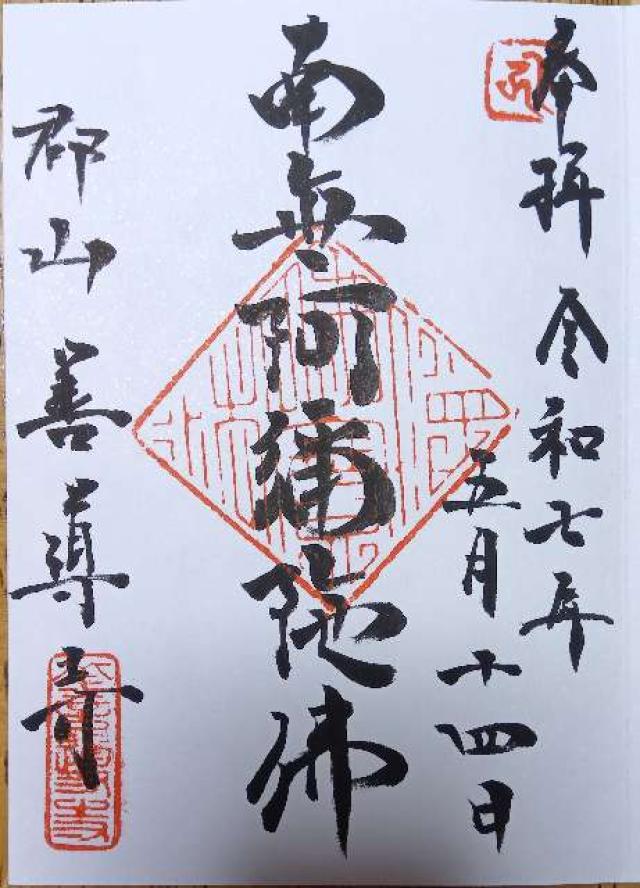 奉拝 令和七年
五月十四日
南無阿彌陀佛
郡山 善導寺